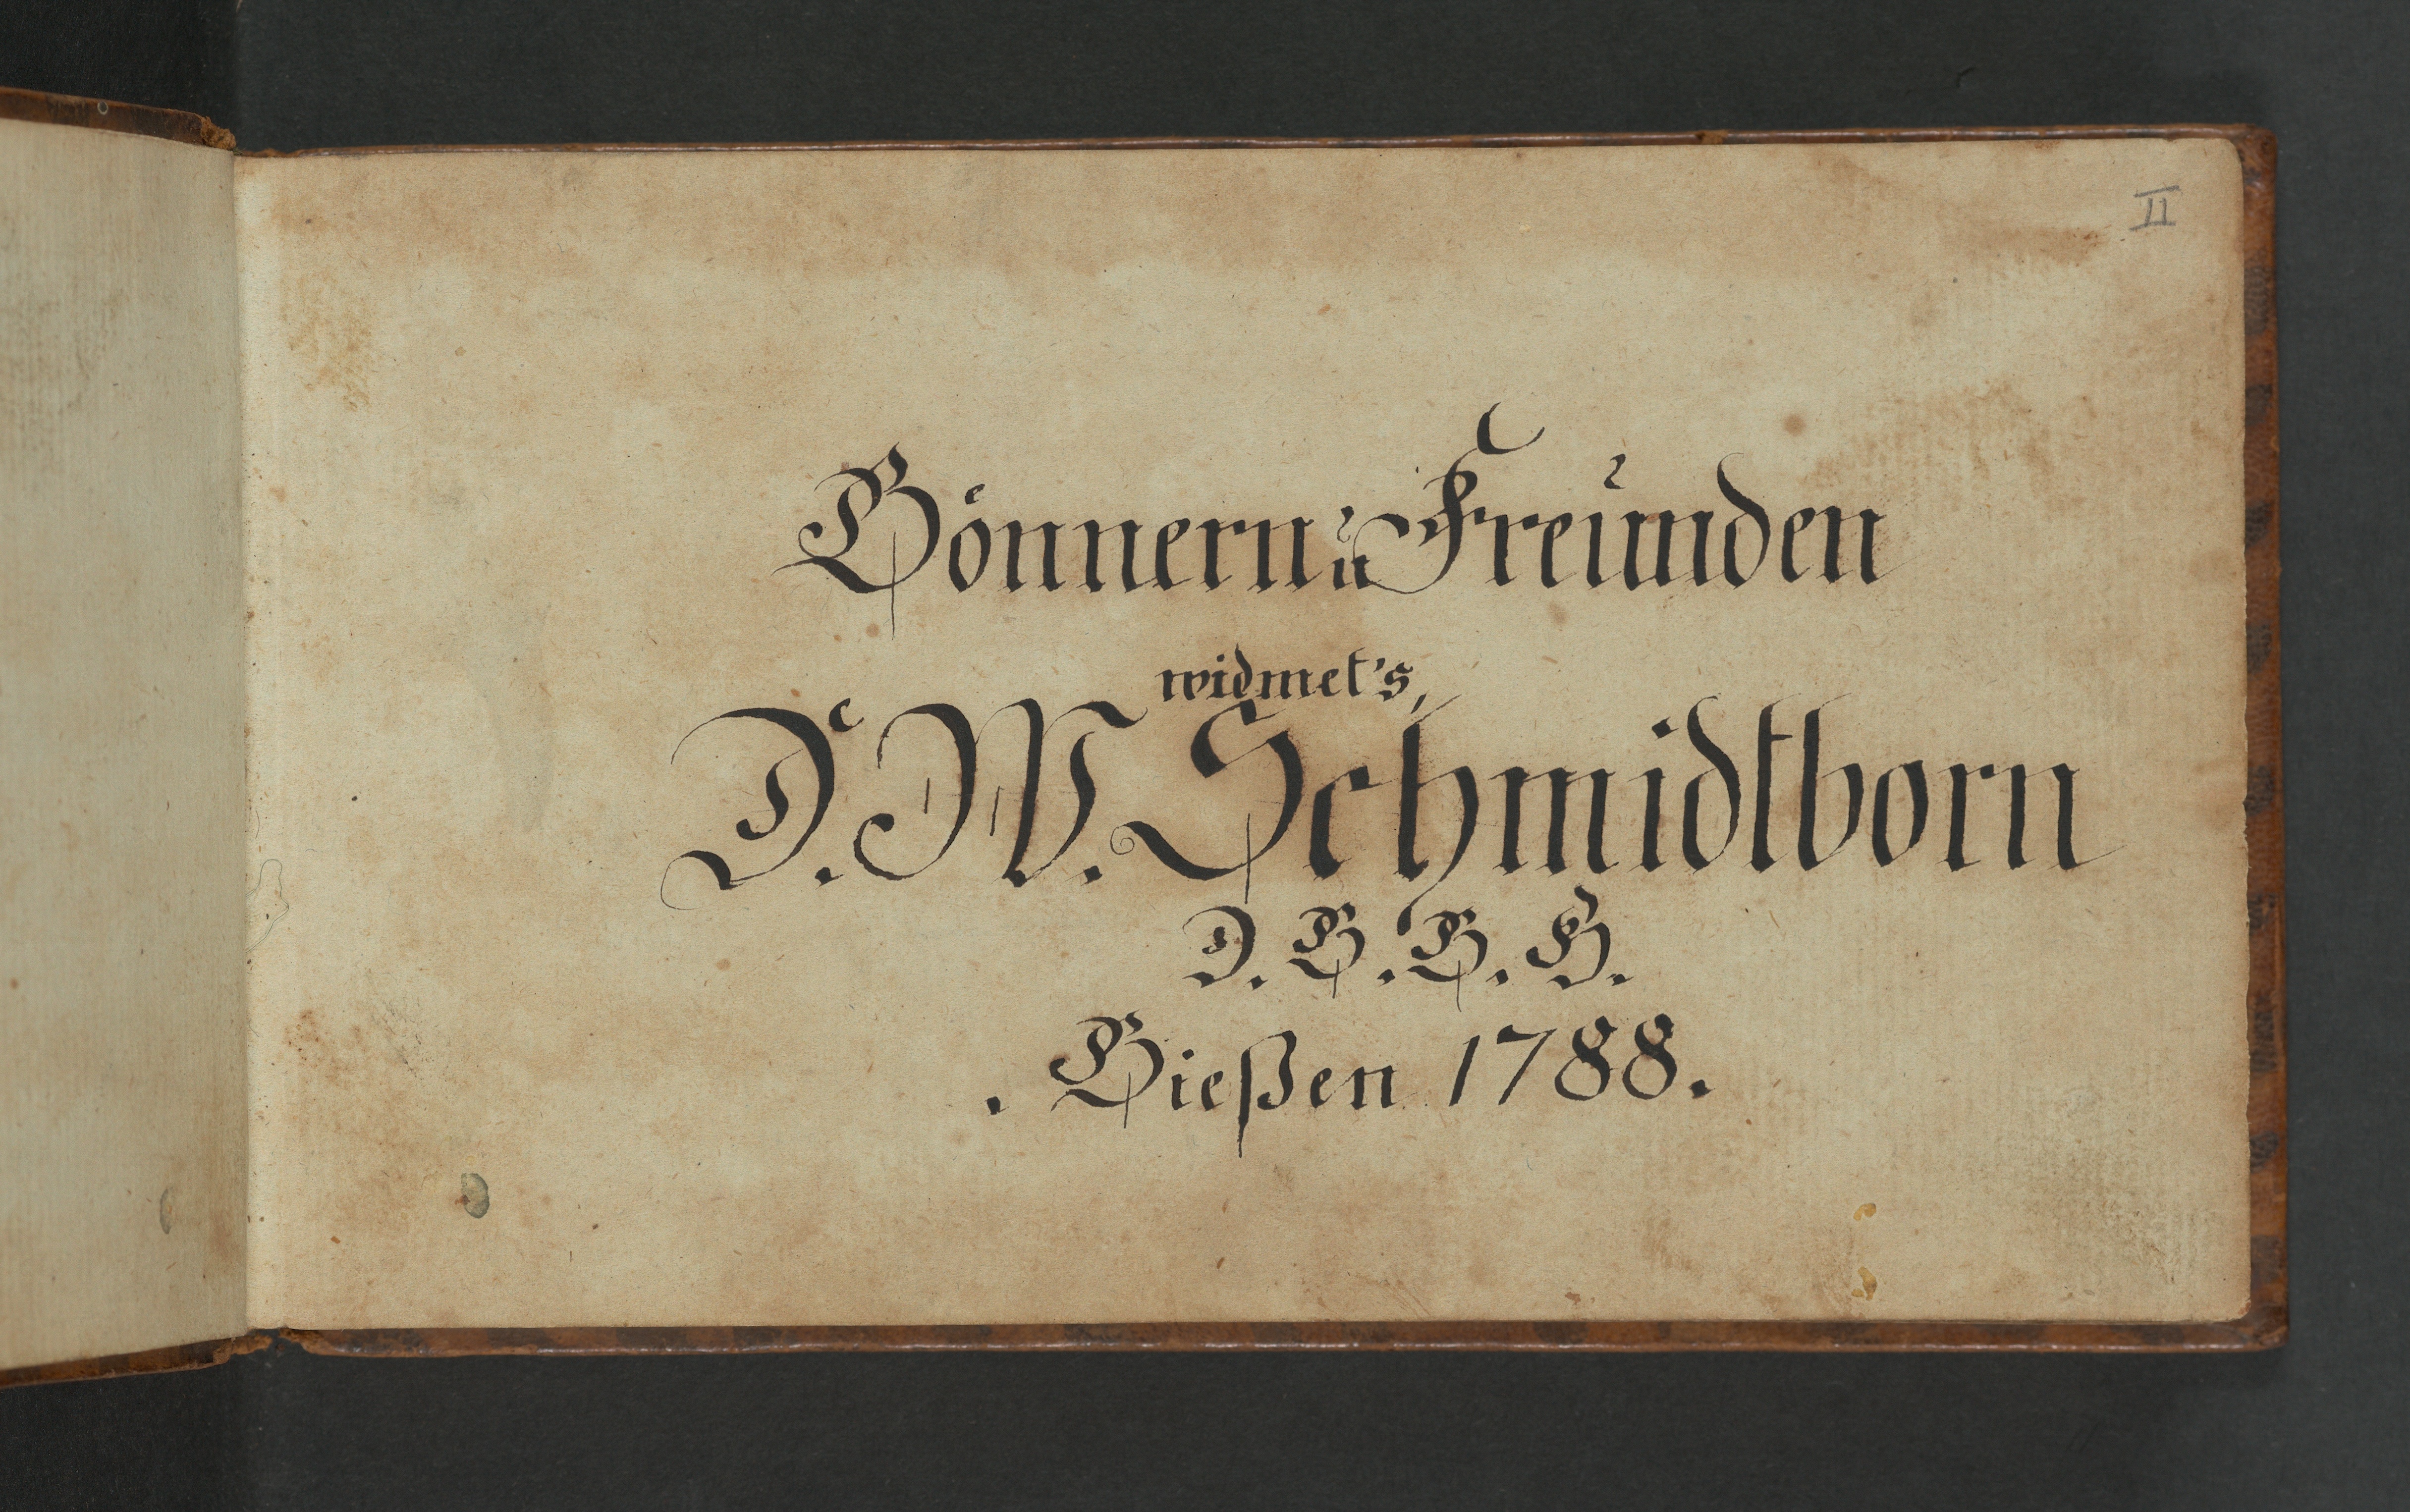 II
Gönnern u Freunden
widmet's,
D. W. Schmidtborn
D. G. G. B.
. Gießen 1788.